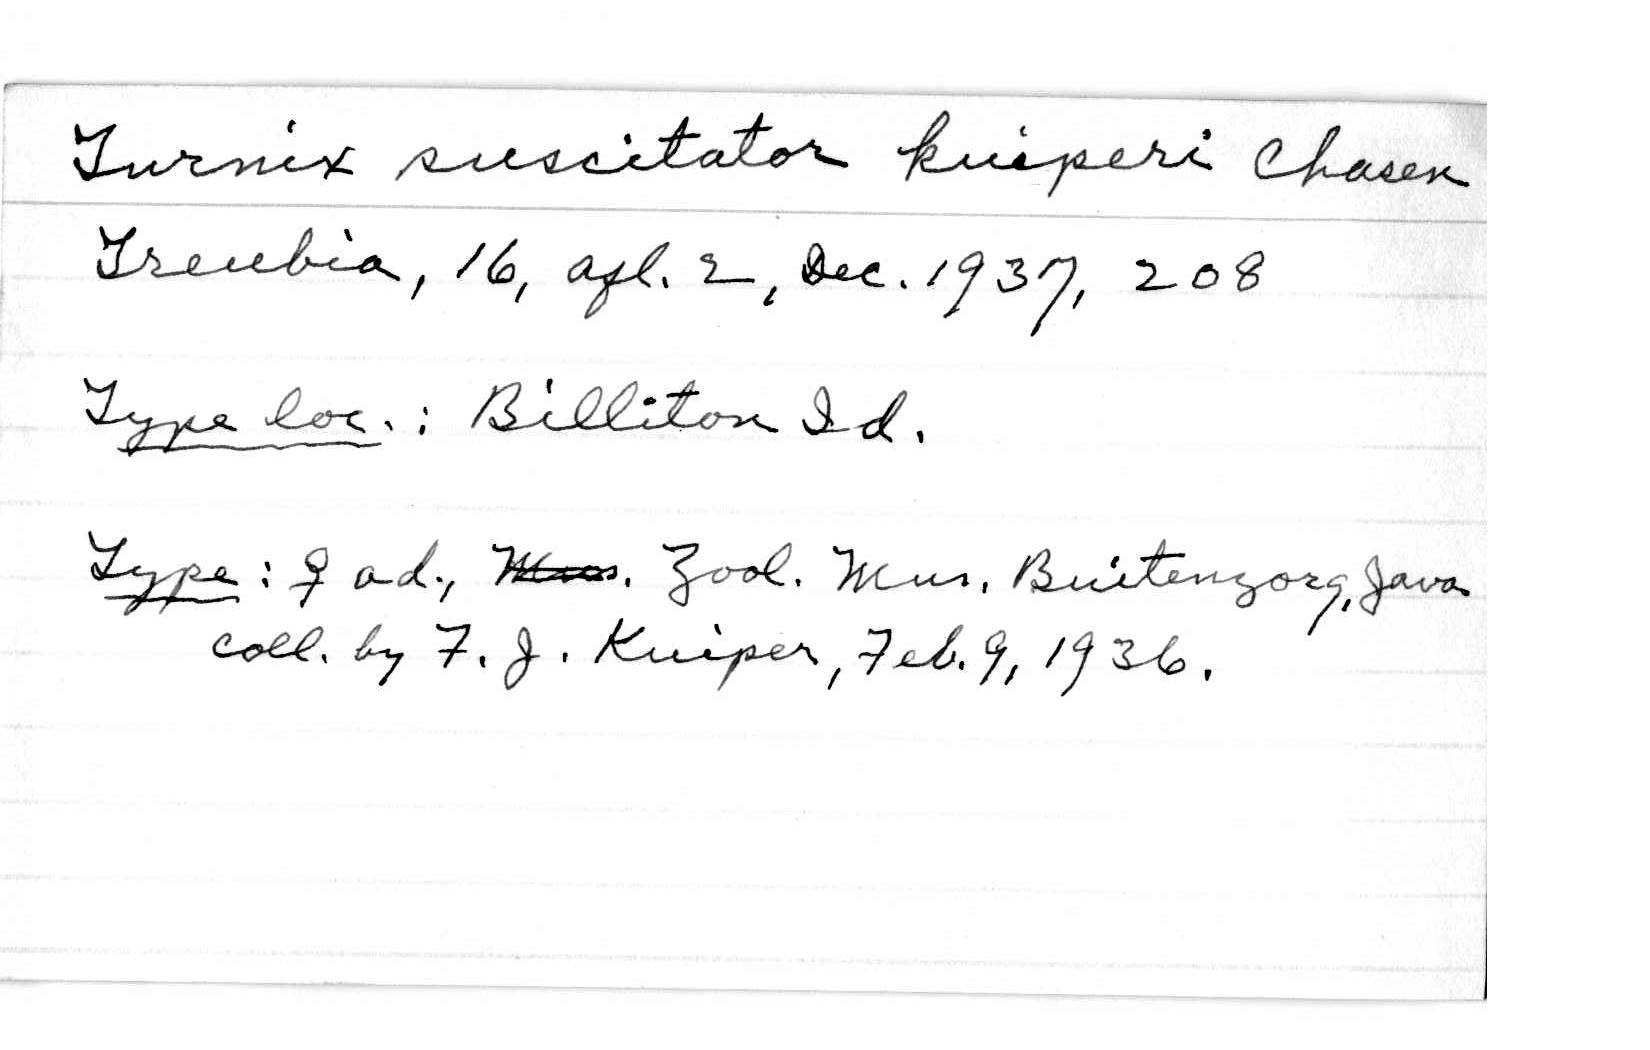 Turnix suscitator kuiperi Chasen
Treubia, 16, afl. 2, Dec. 1937, 208
Type loc.: Billiton Id.
Type: ♀ ad., Mus. Zool. Mus. Buitenzorg, Java
coll. by F. J. Kuiper, Feb. 9, 1936.